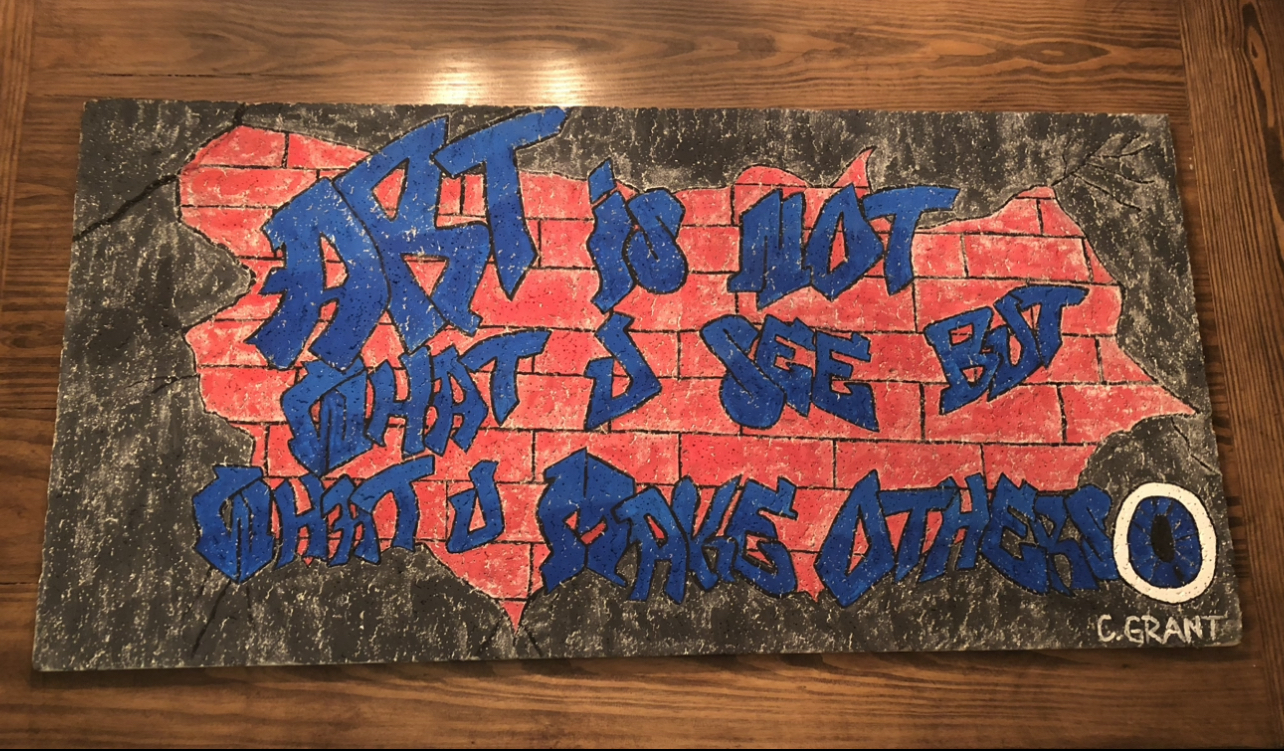 ART is NOT
WHAT J SEE BUT
WHAT U MAKE OTHERS
C. GRANT